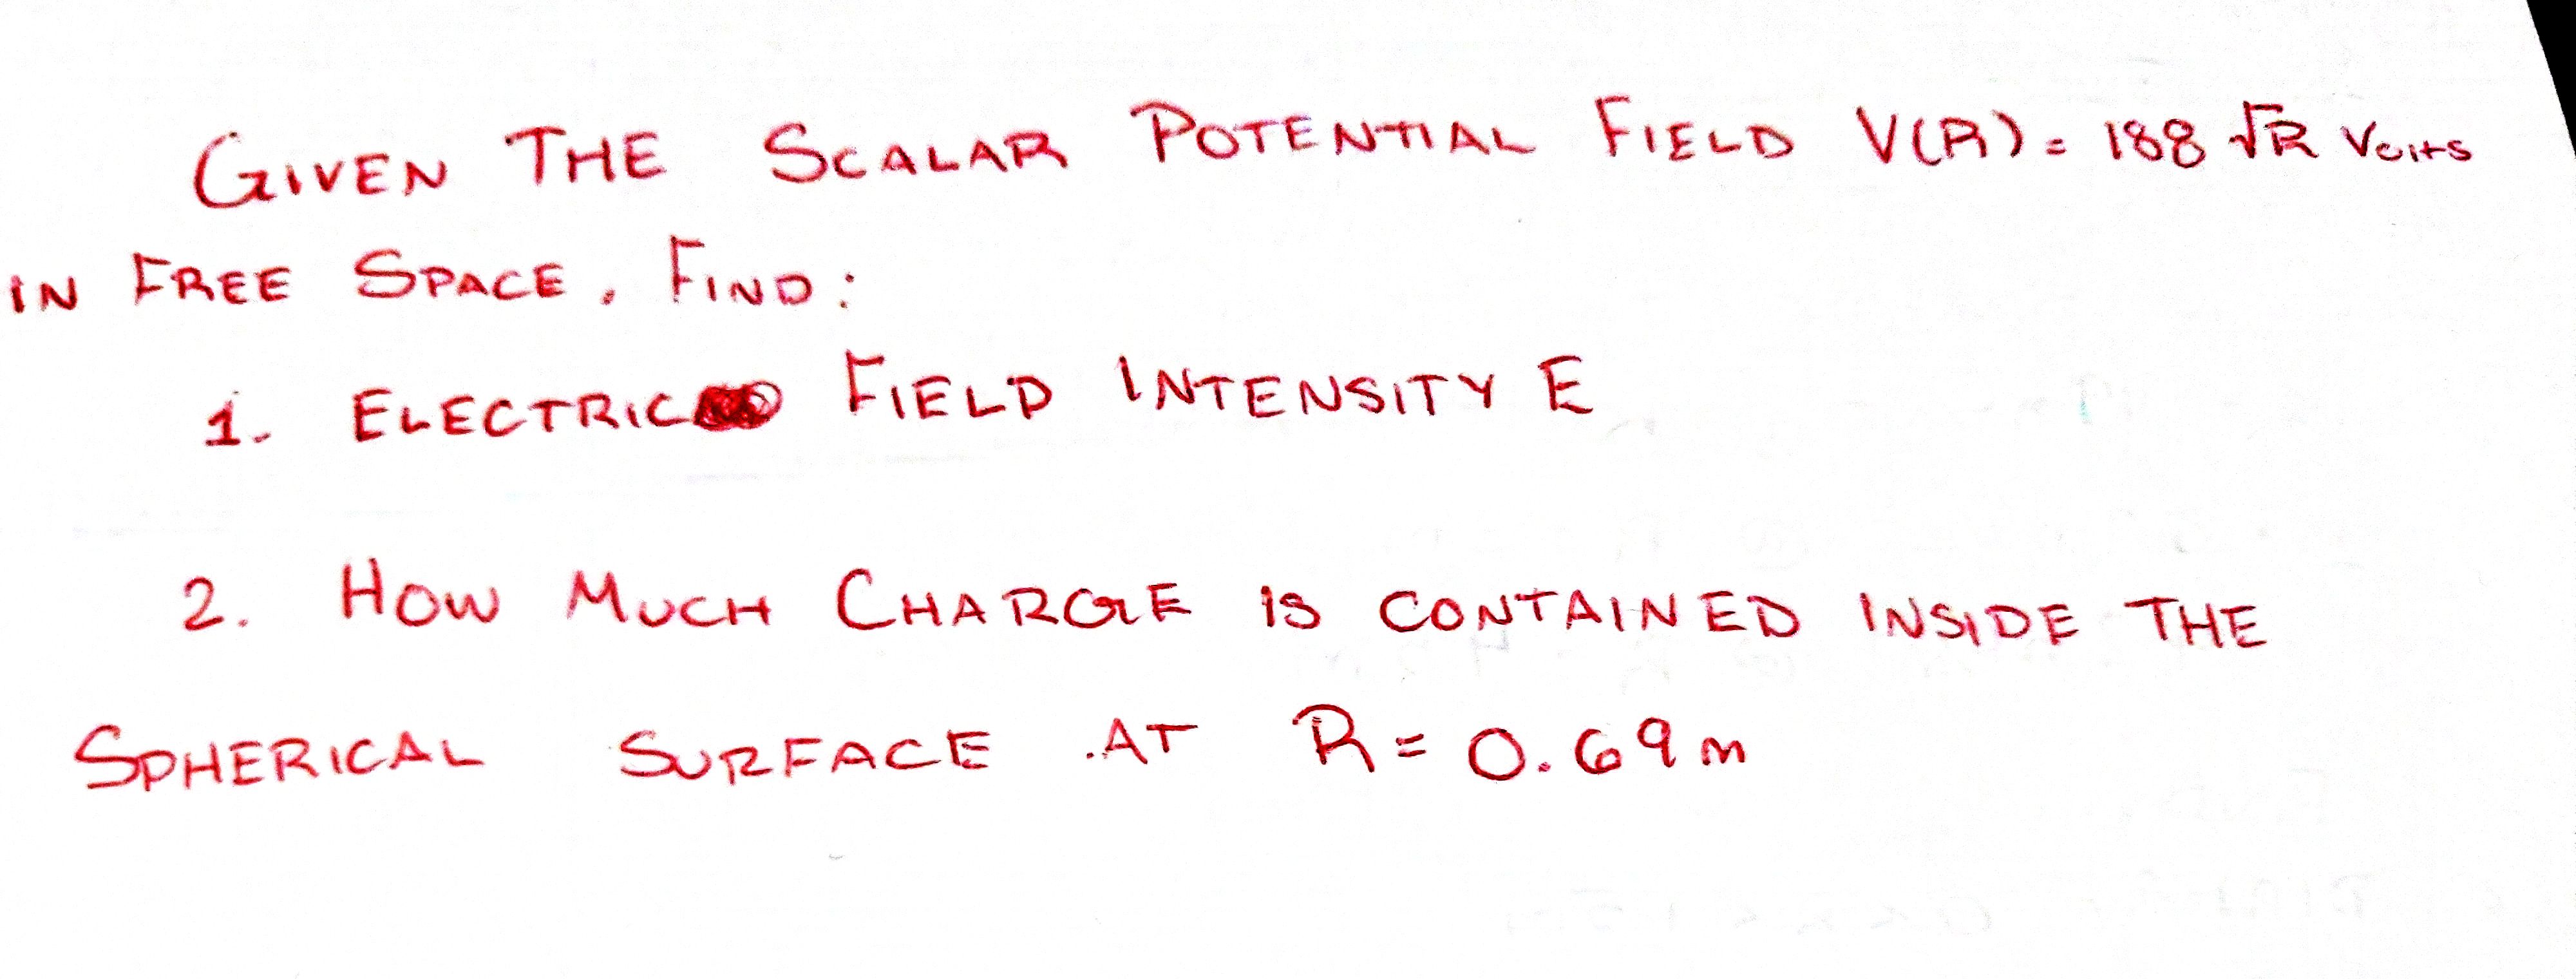 GIVEN THE SCALAR POTENTIAL FIELD V(R) = 188 √R Volts
IN FREE SPACE. FIND:
1. ELECTRIC FIELD INTENSITY E
2. HOW MUCH CHARGE IS CONTAINED INSIDE THE
SPHERICAL SURFACE AT R = 0.69 m